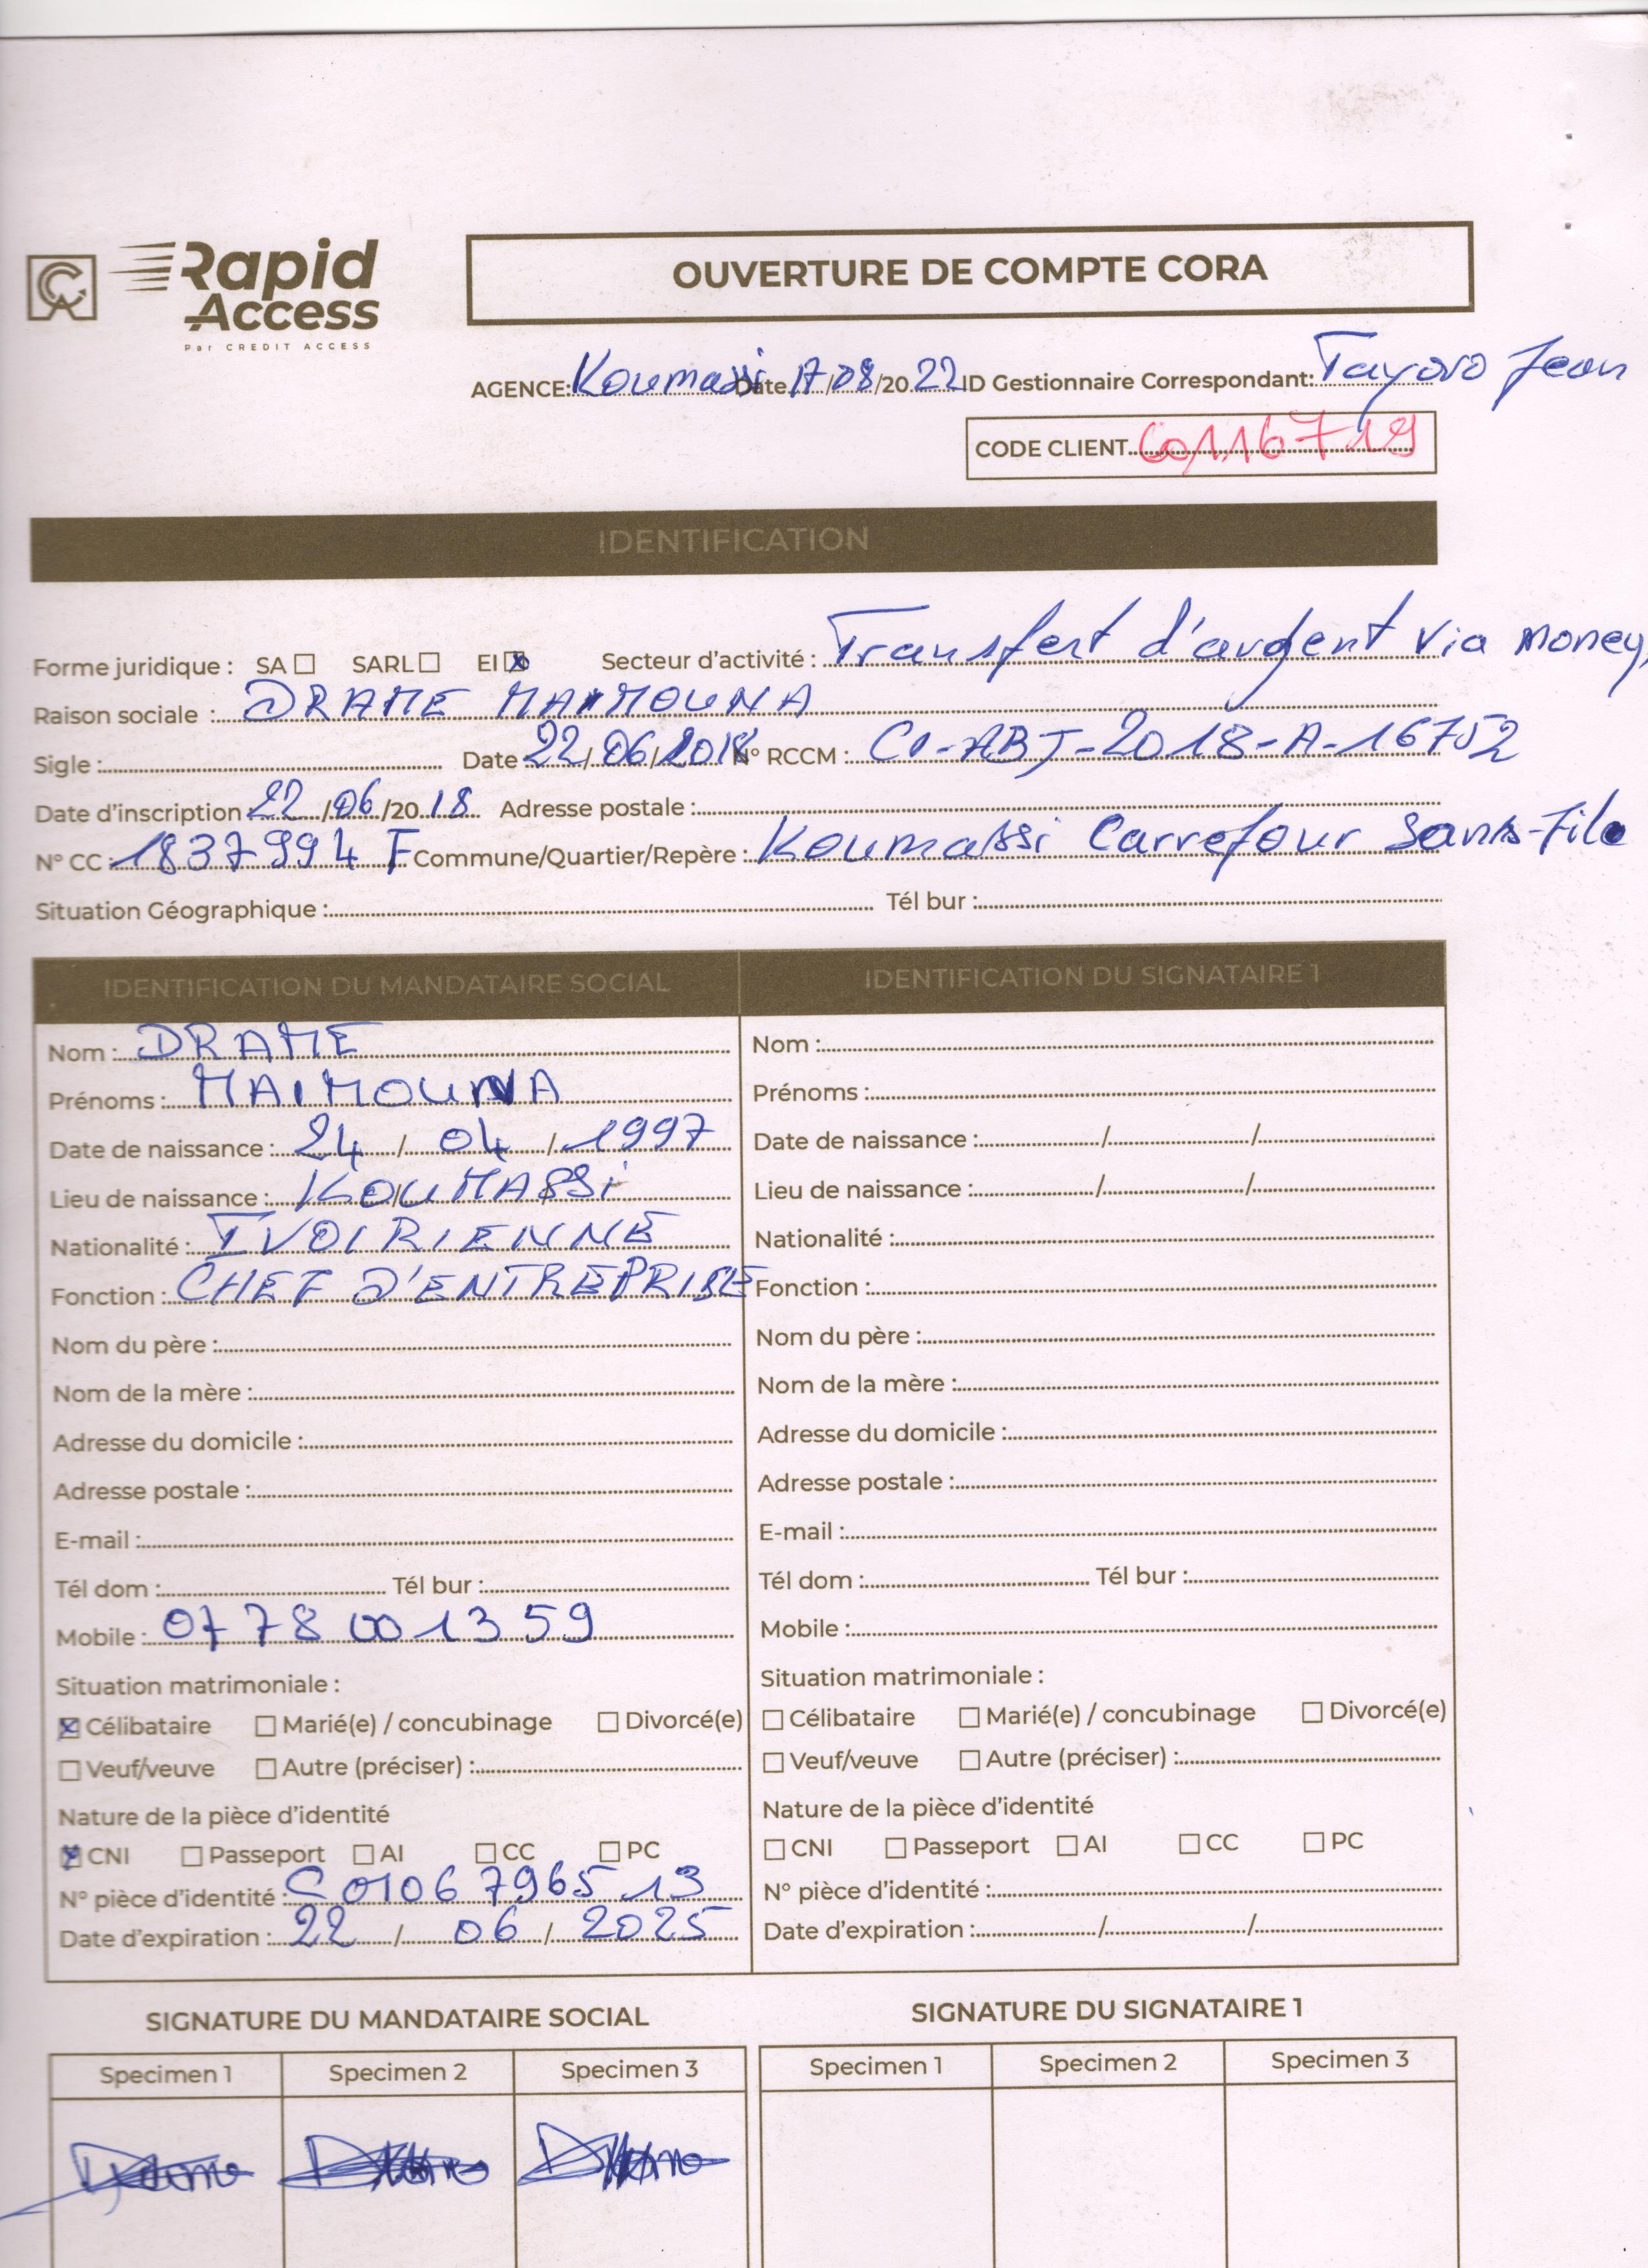 Rapid
Access
Par CREDIT ACCESS
OUVERTURE DE COMPTE CORA
AGENCE: Koumassi Date 17/08/2022 ID Gestionnaire Correspondant: Tayoro Jean
CODE CLIENT 60116719
IDENTIFICATION
Forme juridique : SA ☐ SARL ☐ EI ☒ Secteur d'activité : Transfert d'argent via money
Raison sociale : DRAME MAIMOUNA
Sigle : Date 22/06/2018 N° RCCM : CI-ABJ-2018-A-16752
Date d'inscription 22/06/2018 Adresse postale :
N° CC : 1837994 F Commune/Quartier/Repère : Koumassi Carrefour Sans-Fil
Situation Géographique : Tél bur :
IDENTIFICATION DU MANDATAIRE SOCIAL IDENTIFICATION DU SIGNATAIRE 1
Nom : DRAME
Prénoms : MAIMOUNA
Date de naissance : 24 / 04 / 1997
Lieu de naissance : KOUMASSi
Nationalité : IVOIRIENNE
Fonction : CHEF D'ENTREPRISE
Nom du père :
Nom de la mère :
Adresse du domicile :
Adresse postale :
E-mail :
Tél dom : Tél bur :
Mobile : 07 78 00 13 59
Situation matrimoniale :
☒ Célibataire ☐ Marié(e) / concubinage ☐ Divorcé(e)
☐ Veuf/veuve ☐ Autre (préciser) :
Nature de la pièce d'identité
☒ CNI ☐ Passeport ☐ AI ☐ CC ☐ PC
N° pièce d'identité : C 01067965 13
Date d'expiration : 22 / 06 / 2025
Nom :
Prénoms :
Date de naissance : / /
Lieu de naissance : / /
Nationalité :
Fonction :
Nom du père :
Nom de la mère :
Adresse du domicile :
Adresse postale :
E-mail :
Tél dom : Tél bur :
Mobile :
Situation matrimoniale :
☐ Célibataire ☐ Marié(e) / concubinage ☐ Divorcé(e)
☐ Veuf/veuve ☐ Autre (préciser) :
Nature de la pièce d'identité
☐ CNI ☐ Passeport ☐ AI ☐ CC ☐ PC
N° pièce d'identité :
Date d'expiration : / /
SIGNATURE DU MANDATAIRE SOCIAL SIGNATURE DU SIGNATAIRE 1
Specimen 1 Specimen 2 Specimen 3 Specimen 1 Specimen 2 Specimen 3